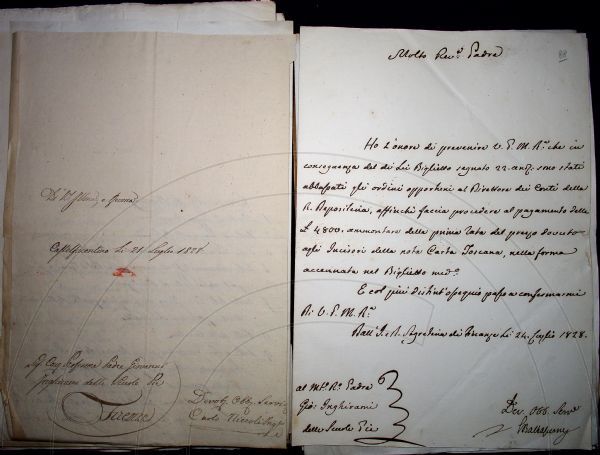 Di V. Illma e Revma
Castelfiorentino li 21 Luglio 1828
Padre Giovanni
Inghirami delle Scuole Pie
Firenze
Devot. Obb. Servit.
Carlo
88
Molto Revdo Padre
Ho l'onore di prevenire V. P. M. Ra che in
conseguenza del di Lei Biglietto segnato 22. andte sono stati
abbassati gli ordini opportuni al Direttore dei Conti della
R. Depositeria, affinchè faccia procedere al pagamento delle
£ 4800. ammontare della prima rata del prezzo dovuto
agli Incisori della nota Carta Toscana, nella forma
accennata nel Biglietto medo
E col più distinto ossequio passo a confermarmi
Di V. P. M. Ra
Dall' I. e R. Segreteria di Finanze li 24. Luglio 1828.
al Mto Rdo Padre
Gio: Inghirami
delle Scuole Pie
Dev. Obb. Serve